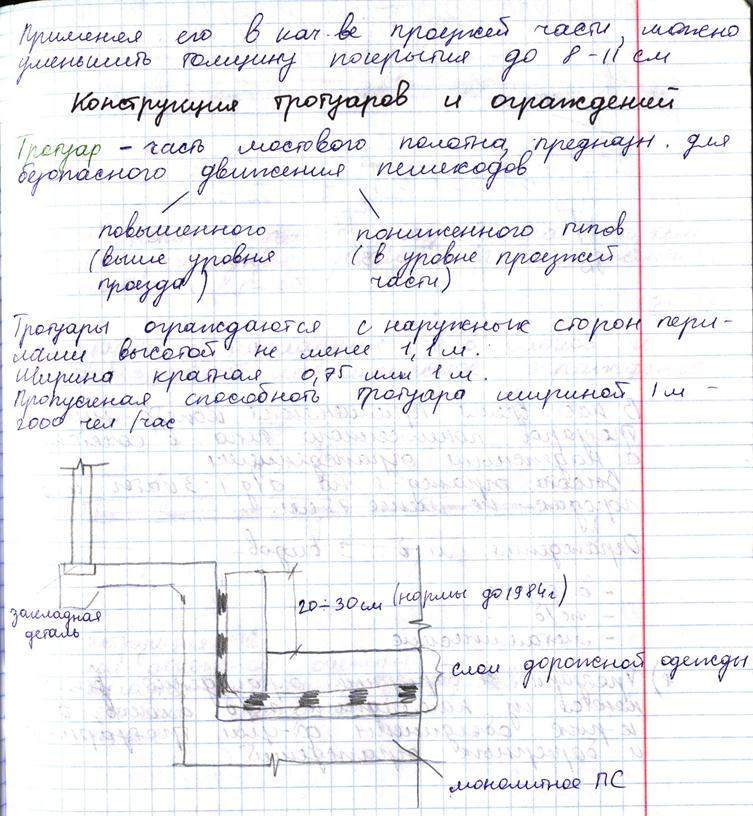 Применяя его в кач-ве проезжей части, можно
уменьшить толщину покрытия до 8-11 см
Конструкция тротуаров и ограждений
Тротуар – часть мостового полотна, предназн. для
безопасного движения пешеходов
повышенного
(выше уровня
проезда)
пониженного типов
(в уровне проезжей
части)
Тротуары ограждаются с наружных сторон пери-
лами высотой не менее 1,1 м.
Ширина кратная 0,75 или 1 м.
Пропускная способность тротуара шириной 1 м –
2000 чел/час
закладная
деталь
20÷30см (нормы до 1984г)
слои дорожной одежды
монолитное ПС